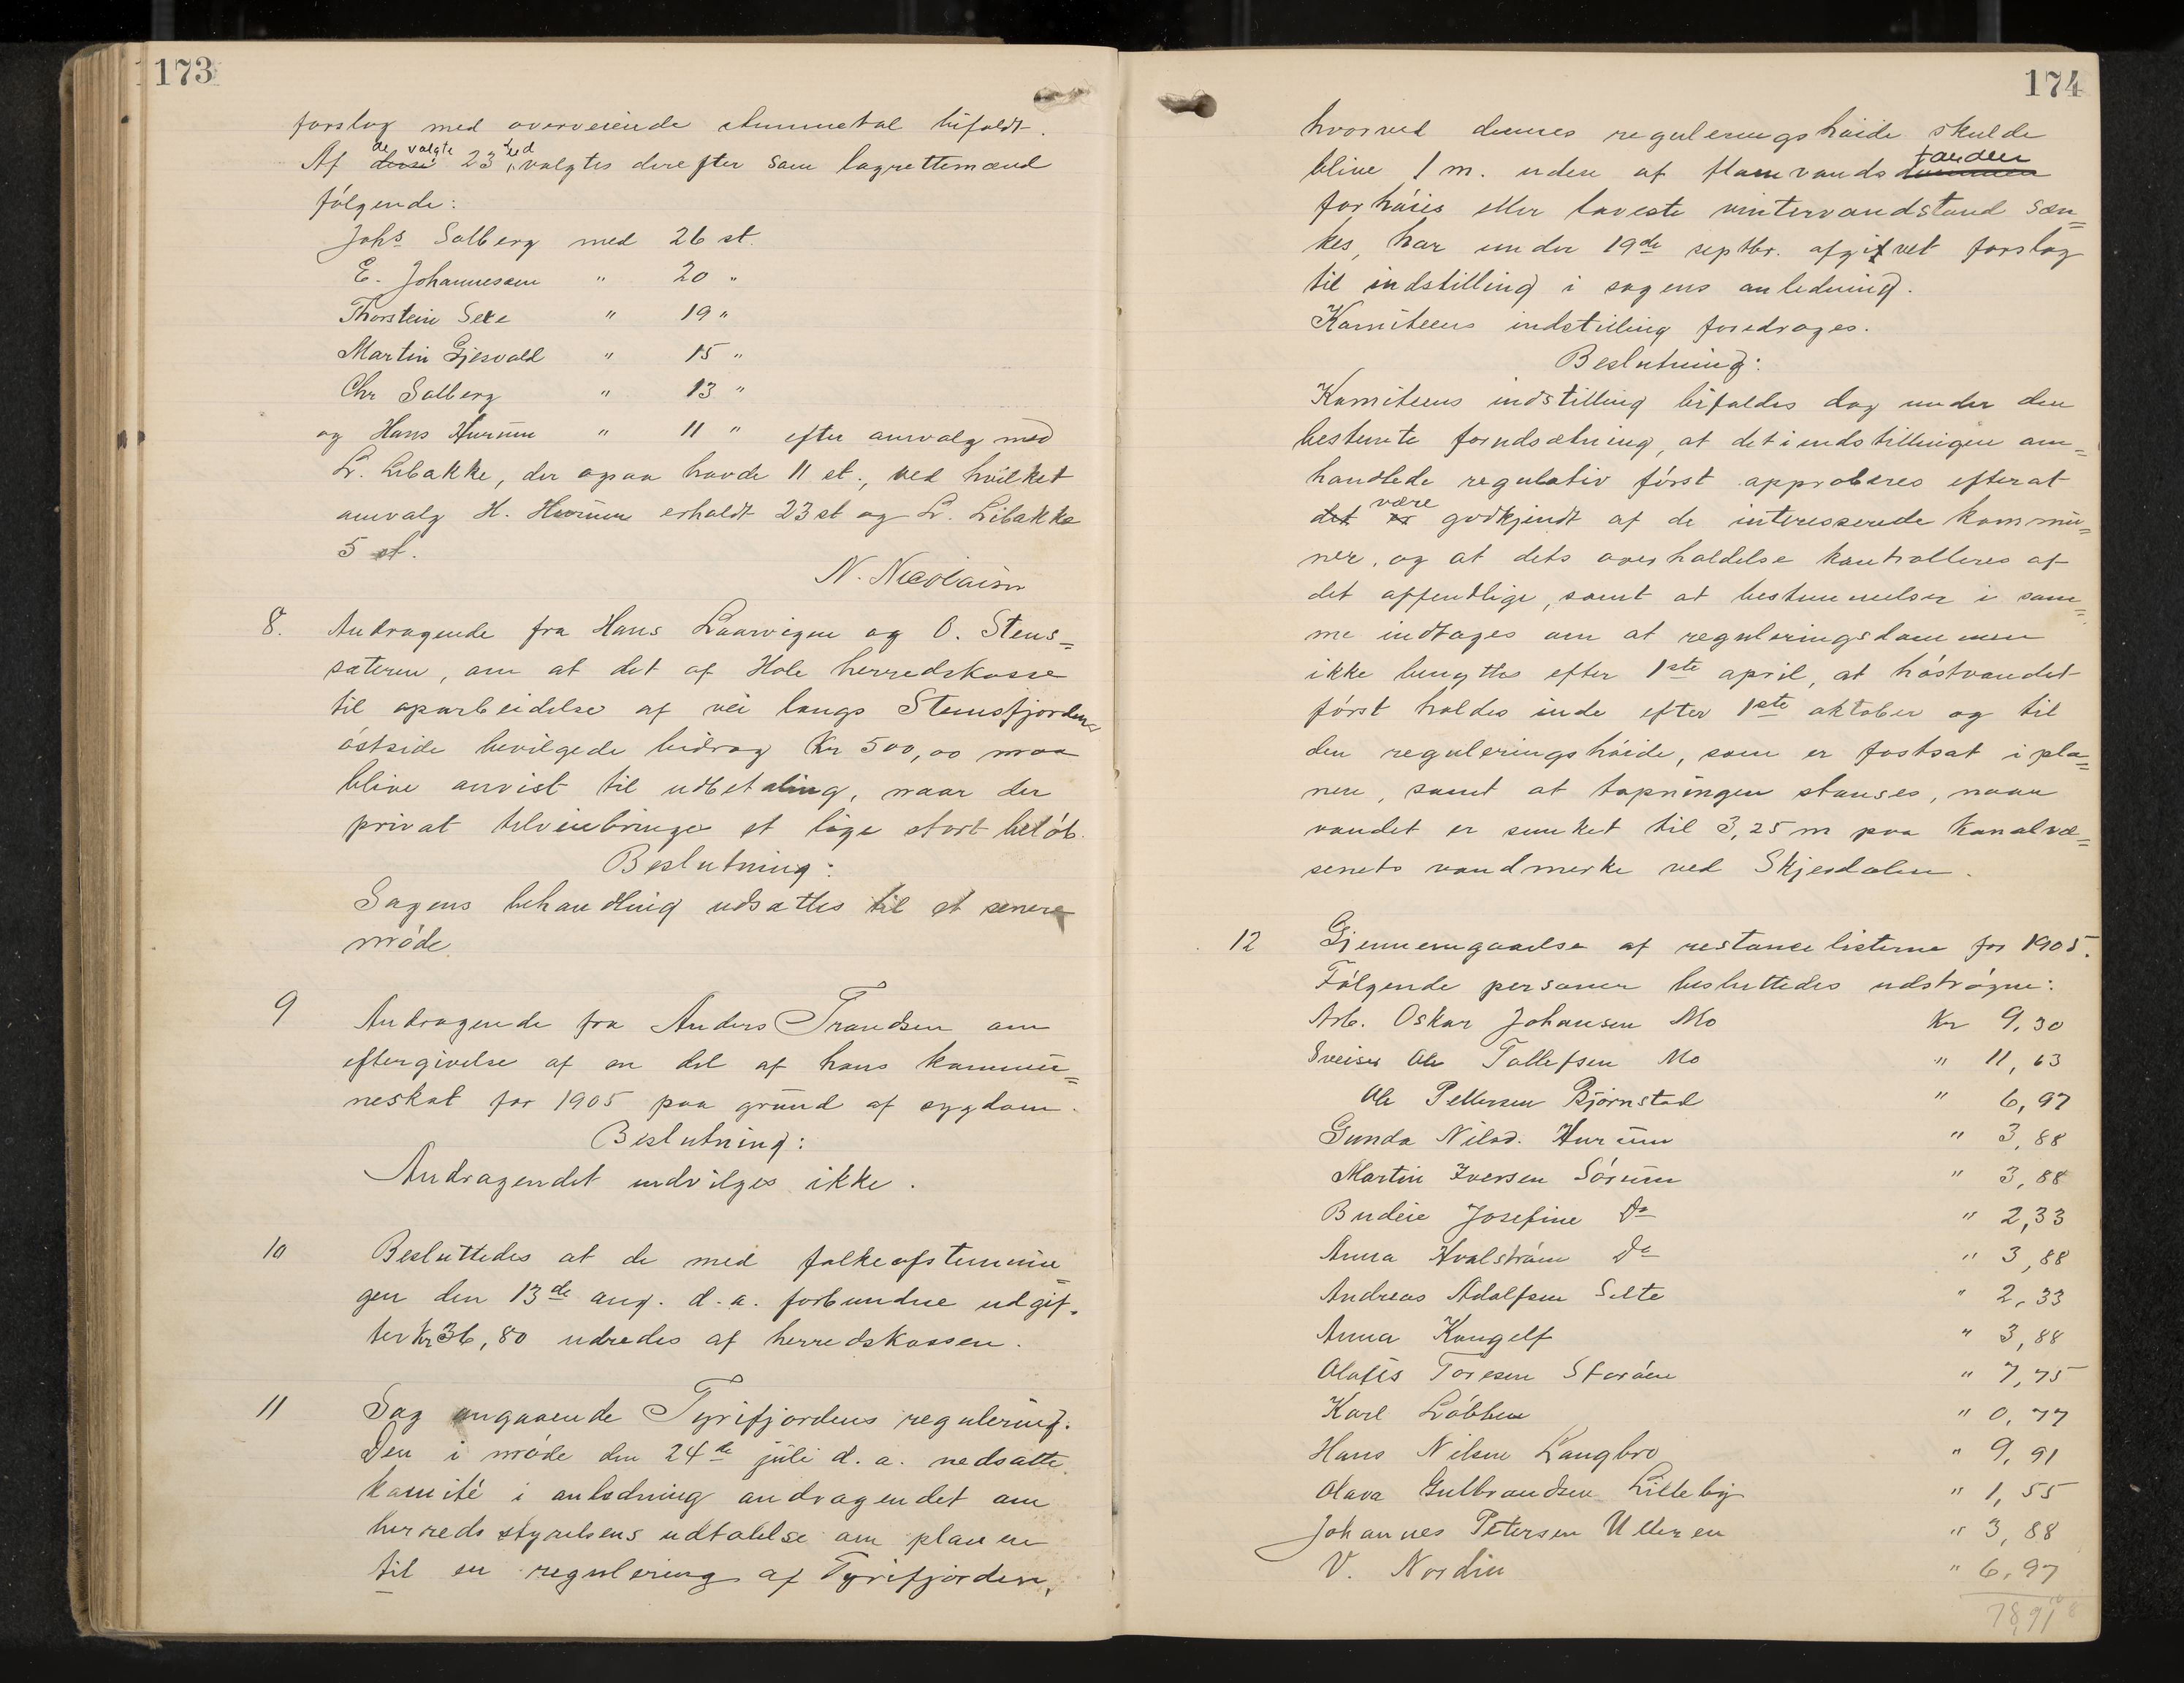 173
forslag med overveiende stemmetal bifaldt.
Af de valgte 23 led valgtes derefter som lagrettemænd
følgende:
Johs Solberg med 26 st.
E. Johannessen " 20 "
Thorstein Sele " 19 "
Martin Gjesvold " 15 "
Chr Solberg " 13 "
og Hans Hurum " 11 " efter omvalg med
L. Libakke, der ogsaa havde 11 st., ved hvilket
omvalg H. Hurum erholdt 23 st og L. Libakke
5 st.
N. Nicolaisen
8. Andragende fra Hans Laarvigen og O. Stens=
sæteren, om at det af Hole herredskasse
til oparbeidelse af vei langs Stensfjordens
østside bevilgede bidrag Kr 500,00 maa
blive anvist til udbetaling, naar der
privat tilveiebringes et lige stort beløb.
Beslutning:
Sagens behandling udsattes til et senere
møde.
9 Andragende fra Anders Trondsen om
eftergivelse af en del af hans kommu=
neskat for 1905 paa grund af sygdom.
Beslutning:
Andragendet indvilges ikke.
10 Besluttedes at de med folkeafstemnin
gen den 13de aug. d.a. forbundne udgif=
ter Kr 36,80 udredes af herredskassen.
11 Sag angaaende Tyrifjordens regulering.
Den i møde den 24de juli d.a. nedsatte
komité i anledning andragendet om
herredsstyrelsens udtalelse om planen
til en regulering af Tyrifjorden,
174
hvorved dennes reguleringshøide skulde
blive 1 m. uden at flomvandstanden
forhøies eller laveste vintervandstand sæn=
kes, har under 19de septbr. afgivet forslag
til indstilling i sagens anledning.
Komiteens indstilling foredrages.
Beslutning:
Komiteens indstilling bifaldes dog under den
bestemte forudsætning, at det i indstillingen om=
handlede regulativ først approberes efterat
det være godkjendt af de interesserede kommu=
ner, og at dets overholdelse kontrolleres af
det offentlige, samt at bestemmelser i sam=
me indtages om at reguleringsdammen
ikke benyttes efter 1ste april, at høstvandet
først holdes inde efter 1ste oktober og til
den reguleringshøide, som er fastsat i pla=
nen, samt at tapningen stanses, naar
vandet er sunket til 3,25 m paa Kanalvæ=
senets vandmerke ved Skjerdalen.
12 Gjennemgaaelse af restancelisterne for 1905.
Følgende personer besluttedes udstrøgne:
Arb. Oskar Johansen Mo Kr 9,30
Sveiser Ole Tollefsen Mo " 11,63
Ole Pettersen Bjørnstad " 6,97
Gunda Nilsd. Hurum " 3,88
Martin Iversen Sørum " 3,88
Budeie Josefine Do " 2,33
Anna Hvalstrøm Do " 3,88
Andreas Adolfsen Selte " 2,33
Anna Kongelf " 3,88
Olafis Toresen Storøen " 7,75
Karl Løbben " 0,77
Hans Nilsen Langbro " 9,91
Olava Gulbrandsen Lilleby " 1,55
Johannes Petersen Ulleren " 3,88
V. Nordin " 6,97
78,91